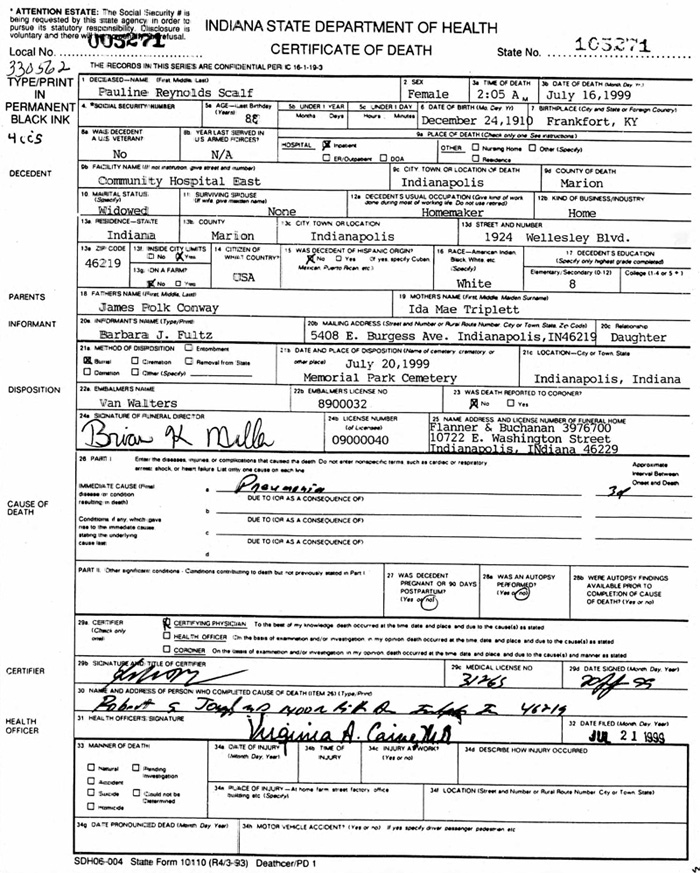 * ATTENTION ESTATE: The Social Security # is
being requested by this state agency in order to
pursue its statutory responsibility. Disclosure is
voluntary and there will refusal.
INDIANA STATE DEPARTMENT OF HEALTH
CERTIFICATE OF DEATH
Local No. 005271
State No. 103271
330562
THE RECORDS IN THIS SERIES ARE CONFIDENTIAL PER IC 16-1-19-3
TYPE/PRINT
IN
PERMANENT
BLACK INK
1 DECEASED—NAME (First, Middle, Last)
Pauline Reynolds Scalf
2 SEX
Female
3a TIME OF DEATH
2:05 A M
3b DATE OF DEATH (Month, Day, Yr.)
July 16,1999
4 *SOCIAL SECURITY NUMBER
5a AGE—Last Birthday
(Years)
88
5b UNDER 1 YEAR
Months Days
5c UNDER 1 DAY
Hours Minutes
6 DATE OF BIRTH (Mo, Day, Yr)
December 24,1910
7 BIRTHPLACE (City and State or Foreign Country)
Frankfort, KY
DECEDENT
8a WAS DECEDENT
A U.S. VETERAN?
No
8b YEAR LAST SERVED IN
U.S. ARMED FORCES?
N/A
9a PLACE OF DEATH (Check only one. See instructions)
HOSPITAL: Inpatient
ER/Outpatient DOA
OTHER: Nursing Home Other (Specify)
Residence
9b FACILITY NAME (If not institution, give street and number)
Community Hospital East
9c CITY, TOWN OR LOCATION OF DEATH
Indianapolis
9d COUNTY OF DEATH
Marion
10 MARITAL STATUS
(Specify)
Widowed
11 SURVIVING SPOUSE
(If wife, give maiden name)
None
12a DECEDENT'S USUAL OCCUPATION (Give kind of work
done during most of working life. Do not use retired)
Homemaker
12b KIND OF BUSINESS/INDUSTRY
Home
13a RESIDENCE—STATE
Indiana
13b COUNTY
Marion
13c CITY, TOWN, OR LOCATION
Indianapolis
13d STREET AND NUMBER
1924 Wellesley Blvd.
13e ZIP CODE
46219
13f INSIDE CITY LIMITS
No Yes
13g ON A FARM?
No Yes
14 CITIZEN OF
WHAT COUNTRY?
USA
15 WAS DECEDENT OF HISPANIC ORIGIN?
No Yes (If yes, specify Cuban,
Mexican, Puerto Rican, etc.)
16 RACE—American Indian,
Black, White, etc.
(Specify)
White
17 DECEDENT'S EDUCATION
(Specify only highest grade completed)
Elementary/Secondary (0-12) College (1-4 or 5+)
8
PARENTS
18 FATHER'S NAME (First, Middle, Last)
James Polk Conway
19 MOTHER'S NAME (First, Middle, Maiden Surname)
Ida Mae Triplett
INFORMANT
20a INFORMANT'S NAME (Type/Print)
Barbara J. Fultz
20b MAILING ADDRESS (Street and Number or Rural Route Number, City or Town, State, Zip Code)
5408 E. Burgess Ave. Indianapolis,IN46219
20c Relationship
Daughter
DISPOSITION
21a METHOD OF DISPOSITION Entombment
Burial Cremation Removal from State
Donation Other (Specify)
21b DATE AND PLACE OF DISPOSITION (Name of cemetery, crematory, or
other place)
July 20,1999
Memorial Park Cemetery
21c LOCATION—City or Town, State
Indianapolis, Indiana
22a EMBALMER'S NAME
Van Walters
22b EMBALMER'S LICENSE NO
8900032
23 WAS DEATH REPORTED TO CORONER?
No Yes
24a SIGNATURE OF FUNERAL DIRECTOR
Brian K Miller
24b LICENSE NUMBER
(of Licensee)
09000040
25 NAME, ADDRESS AND LICENSE NUMBER OF FUNERAL HOME
Flanner & Buchanan 3976700
10722 E. Washington Street
Indianapolis, INdiana 46229
CAUSE OF
DEATH
26 PART I Enter the diseases, injuries, or complications that caused the death. Do not enter nonspecific terms, such as cardiac or respiratory
arrest, shock, or heart failure. List only one cause on each line
Approximate
Interval Between
Onset and Death
IMMEDIATE CAUSE (Final
disease or condition
resulting in death)
a Pneumonia
3d
DUE TO (OR AS A CONSEQUENCE OF)
Conditions if any, which gave
rise to the immediate cause
stating the underlying
cause last
b
DUE TO (OR AS A CONSEQUENCE OF)
c
DUE TO (OR AS A CONSEQUENCE OF)
d
PART II Other significant conditions - Conditions contributing to death but not previously stated in Part I
27 WAS DECEDENT
PREGNANT OR 90 DAYS
POSTPARTUM?
(Yes or no)
28a WAS AN AUTOPSY
PERFORMED?
(Yes or no)
28b WERE AUTOPSY FINDINGS
AVAILABLE PRIOR TO
COMPLETION OF CAUSE
OF DEATH? (Yes or no)
CERTIFIER
29a CERTIFIER
(Check only
one)
CERTIFYING PHYSICIAN To the best of my knowledge death occurred at the time, date and place, and due to the cause(s) as stated
HEALTH OFFICER On the basis of examination and/or investigation, in my opinion death occurred at the time, date and place, and due to the cause(s) as stated
CORONER On the basis of examination and/or investigation, in my opinion death occurred at the time, date and place, and due to the cause(s) and manner as stated
29b SIGNATURE AND TITLE OF CERTIFIER
29c MEDICAL LICENSE NO
31265
29d DATE SIGNED (Month, Day, Year)
30 NAME AND ADDRESS OF PERSON WHO COMPLETED CAUSE OF DEATH (ITEM 26) (Type/Print)
Robert S 46219
HEALTH
OFFICER
31 HEALTH OFFICER'S SIGNATURE
Virginia A. Caine MD
32 DATE FILED (Month, Day, Year)
JUL 21 1999
33 MANNER OF DEATH
Natural Pending
Investigation
Accident
Suicide Could not be
Determined
Homicide
34a DATE OF INJURY
(Month, Day, Year)
34b TIME OF
INJURY
34c INJURY AT WORK?
(Yes or no)
34d DESCRIBE HOW INJURY OCCURRED
34e PLACE OF INJURY—At home, farm, street, factory, office
building, etc. (Specify)
34f LOCATION (Street and Number or Rural Route Number, City or Town, State)
34g DATE PRONOUNCED DEAD (Month, Day, Year)
34h MOTOR VEHICLE ACCIDENT? (Yes or no) If yes, specify driver, passenger, pedestrian, etc.
SDH06-004 State Form 10110 (R4/3-93) Deathcer/PD 1